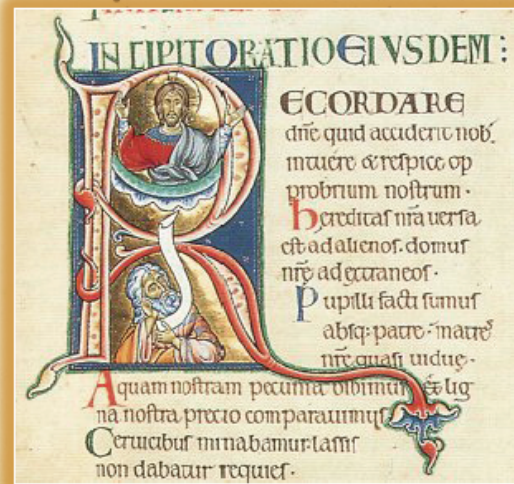 INCIPIT ORATIO EIUSDEM :
RECORDARE
dn̄e quid acciderit nob̄.
intuere & respice op
probrium nostrum.
hereditas nr̄a uersa
est ad alienos. domus
nr̄e ad extraneos.
Pupilli facti sumus
absq; patre. matres
nr̄e quasi uidue.
Aquam nostram pecunia bibimus. & lig
na nostra precio comparauimus
Ceruicibus minabamur. lassis
non dabatur requies.